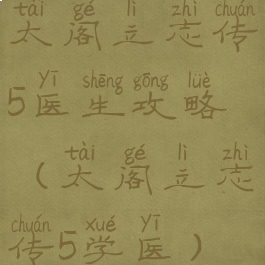 tài gé lì zhì chuán
太阁立志传
yī shēng gōng lüè
5医生攻略
tài gé lì zhì
（太阁立志
chuán xué yī
传5学医）